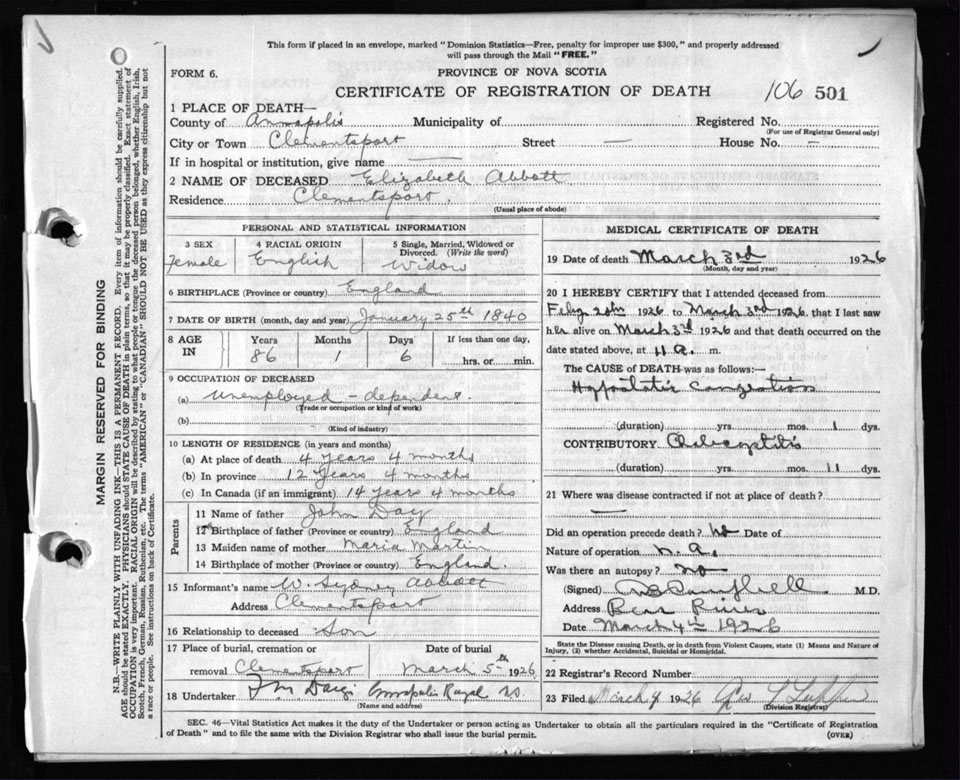 This form if placed in an envelope, marked "Dominion Statistics—Free, penalty for improper use $300," and properly addressed
will pass through the Mail "FREE."
FORM 6.
PROVINCE OF NOVA SCOTIA
CERTIFICATE OF REGISTRATION OF DEATH
106 501
1 PLACE OF DEATH—
County of Annapolis Municipality of Registered No.
(For use of Registrar General only)
City or Town Clementsport Street — House No. –
If in hospital or institution, give name —
2 NAME OF DECEASED Elizabeth Abbott
Residence Clementsport.
(Usual place of abode)
PERSONAL AND STATISTICAL INFORMATION
3 SEX 4 RACIAL ORIGIN 5 Single, Married, Widowed or
Divorced. (Write the word)
Female English Widow
6 BIRTHPLACE (Province or country) England
7 DATE OF BIRTH (month, day and year) January 25th 1840
8 AGE IN Years Months Days If less than one day,
86 1 6 hrs. or min.
9 OCCUPATION OF DECEASED
(a) Unemployed – dependent.
(Trade or occupation or kind of work)
(b)
(Kind of industry)
10 LENGTH OF RESIDENCE (in years and months)
(a) At place of death 4 Years 4 months
(b) In province 12 Years 4 months
(c) In Canada (if an immigrant) 14 Years 4 months
Parents
11 Name of father John Day
12 Birthplace of father (Province or country) England
13 Maiden name of mother Maria Martin
14 Birthplace of mother (Province or country) England.
15 Informant's name W. Sydney Abbott
Address Clementsport
16 Relationship to deceased Son
17 Place of burial, cremation or Date of burial
removal Clementsport March 5th 1926
18 Undertaker Annapolis Royal N.S.
(Name and address)
MEDICAL CERTIFICATE OF DEATH
19 Date of death March 3rd 1926
(Month, day and year)
20 I HEREBY CERTIFY that I attended deceased from
20th 1926 to March 3rd 1926, that I last saw
her alive on March 3rd 1926 and that death occurred on the
date stated above, at 11 a. m.
The CAUSE of DEATH was as follows:—
Hypostatic Congestion
(duration) yrs. mos. 1 dys.
CONTRIBUTORY
(duration) yrs. mos. 11 dys.
21 Where was disease contracted if not at place of death?
—
Did an operation precede death? No Date of
Nature of operation n. a.
Was there an autopsy? no
(Signed) Campbell M.D.
Address Bear River
Date March 4th 1926
State the Disease causing Death, or in death from Violent Causes, state (1) Means and Nature of
Injury, (2) whether Accidental, Suicidal or Homicidal.
22 Registrar's Record Number
23 Filed March 1926
(Division Registrar)
SEC. 46—Vital Statistics Act makes it the duty of the Undertaker or person acting as Undertaker to obtain all the particulars required in the "Certificate of Registration
of Death" and to file the same with the Division Registrar who shall issue the burial permit.
(OVER)
MARGIN RESERVED FOR BINDING
N.B.—WRITE PLAINLY WITH UNFADING INK—THIS IS A PERMANENT RECORD. Every item of information should be carefully supplied.
AGE should be stated EXACTLY. PHYSICIANS should STATE CAUSE OF DEATH in plain terms, so that it may be properly classified. Exact statement of
OCCUPATION is very important. RACIAL ORIGIN will be described by stating to what people or tongue the deceased person belonged, whether English, Irish,
Scotch, French, German, Russian, Ruthenian, etc. The terms "AMERICAN" or "CANADIAN" SHOULD NOT BE USED as they express citizenship but not
a race or people. See instructions on back of Certificate.